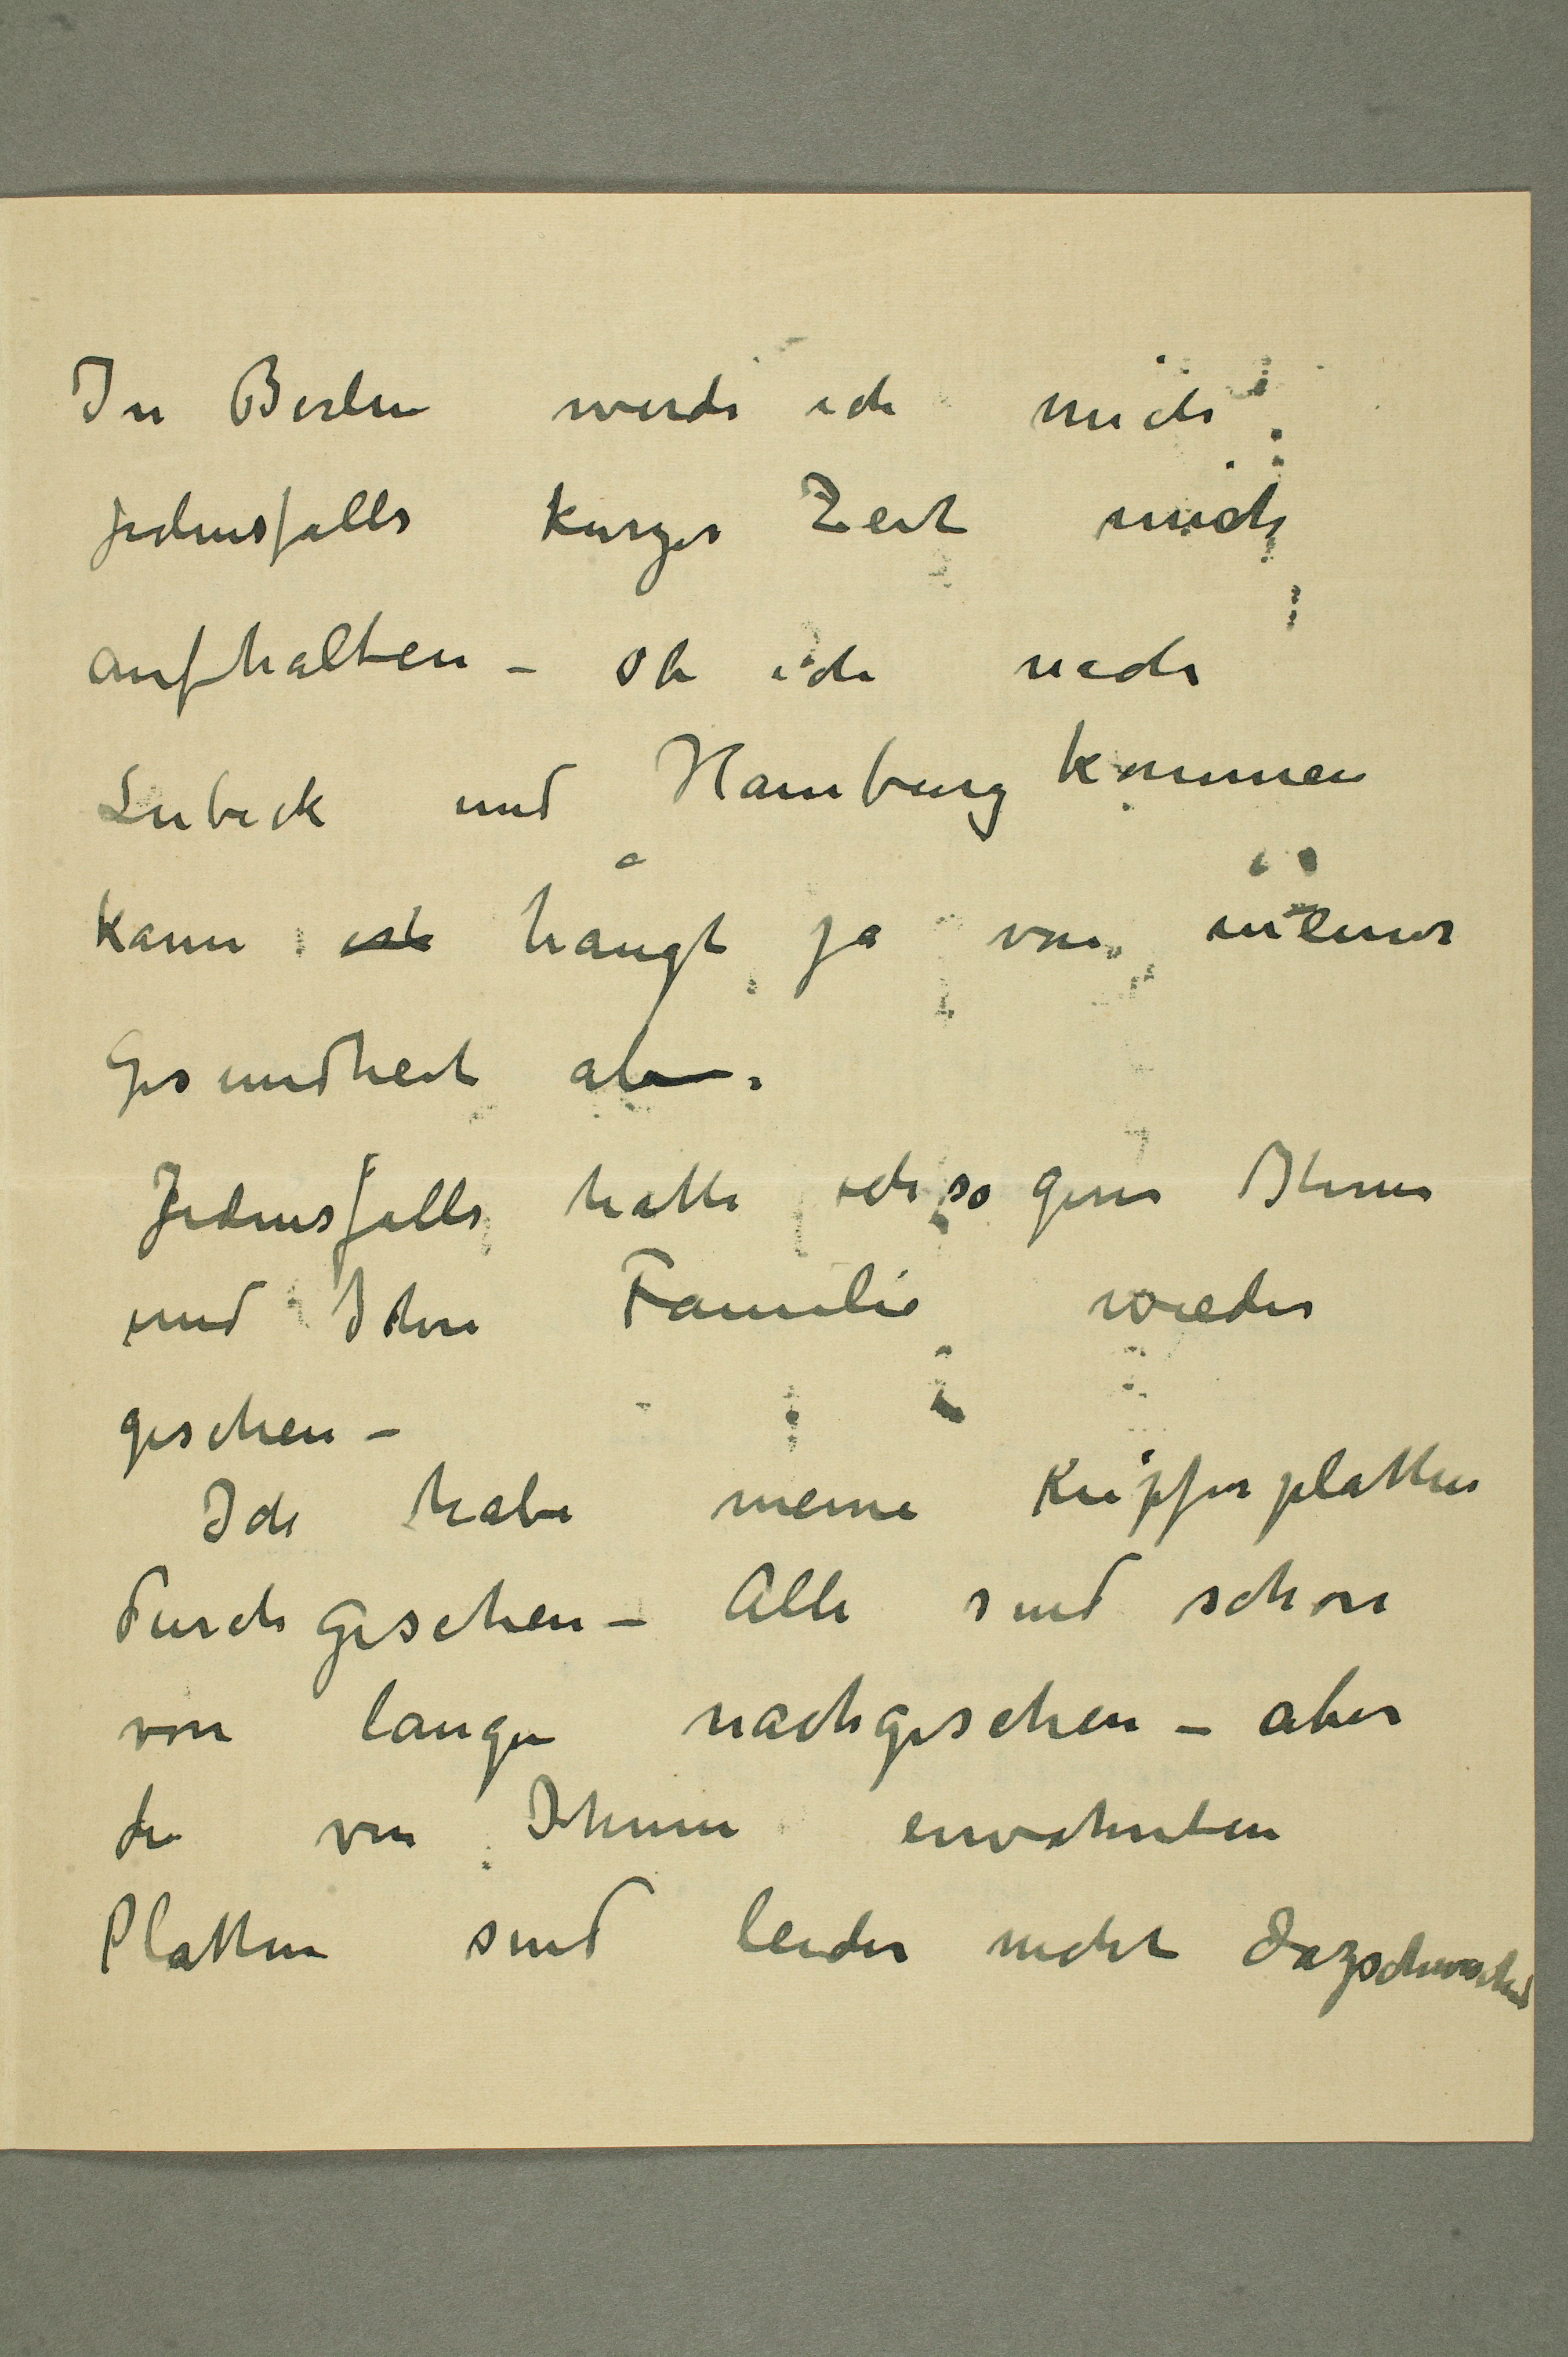 In Berlin werde ich mich
jedensfalls kurzer Zeit mich
aufhalten – Ob ich nach
Lubeck und Hamburg kommen
kann ist hängt ja von meiner
Gesundheit ab.
Jedensfalls hatte ich so gern Ihnen
und Ihre Familie wieder
gesehen –
Ich habe meine Kupferplatten
durchgesehen – Alle sind schon
von lange nachgesehen – aber
die von Ihnen erwahnten
Platten sind leider nicht dazschwischend